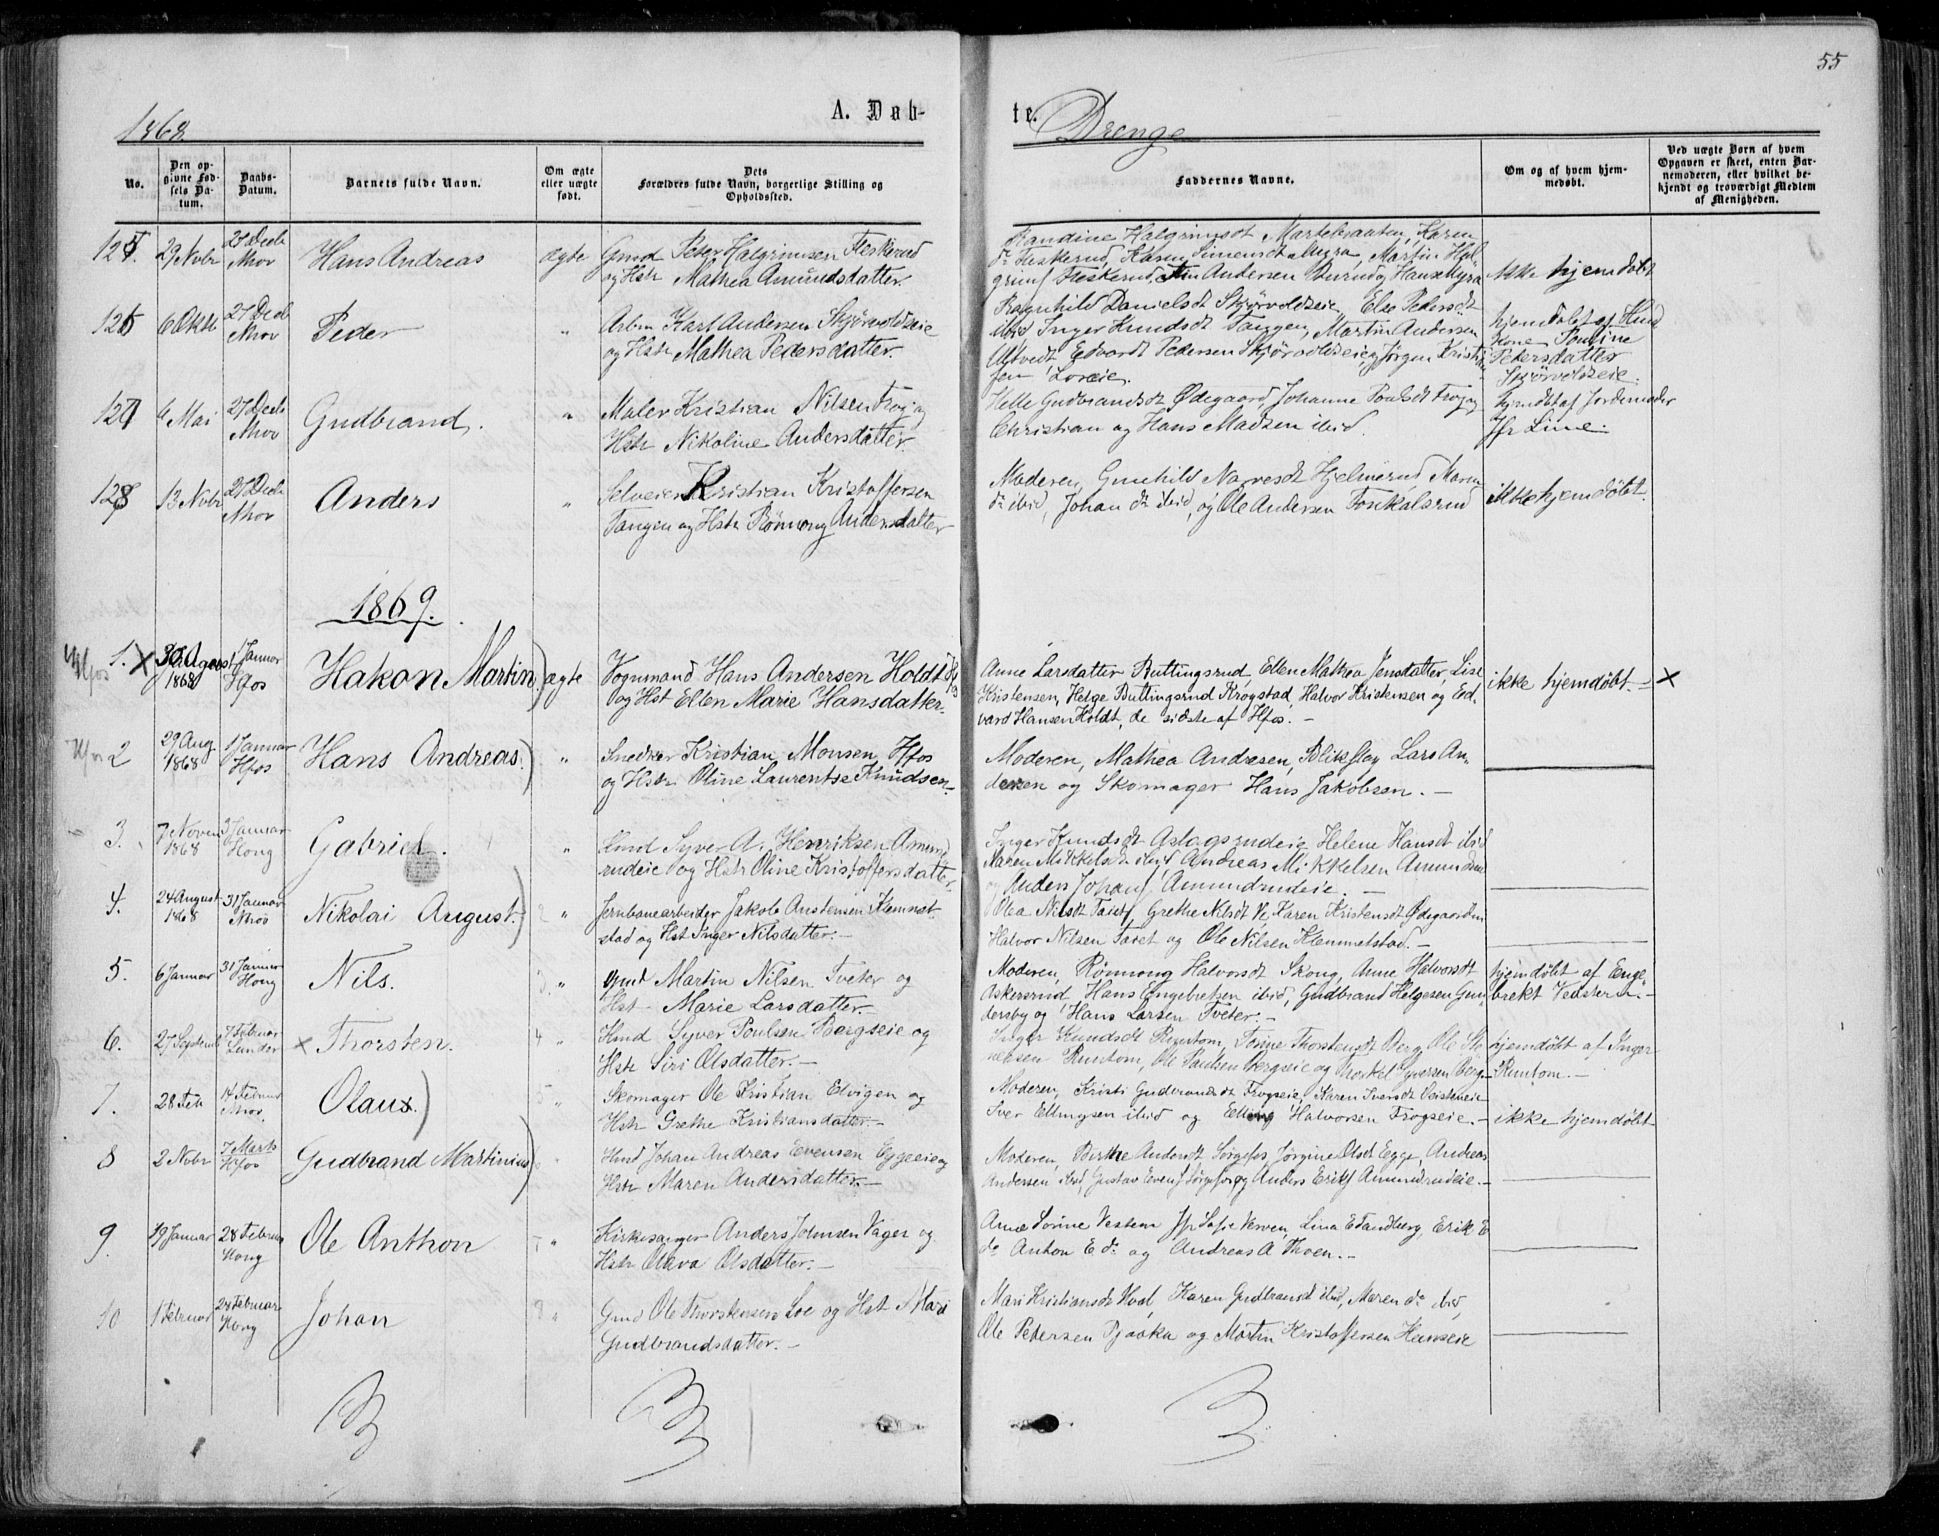 55
1868
A. Døb-
te. Drenge
No.
Den op-
givne Fød-
sels Da-
tum.
Daabs-
Datum.
Barnets fulde Navn.
Om ægte
eller uægte
født.
Dets
Forældres fulde Navn, borgerlige Stilling og
Opholdssted.
Faddernes Navne.
Om og af hvem hjem-
medøbt.
Ved uægte Børn af hvem
Opgaven er skeet, enten Bar-
nemoderen, eller hvilket be-
kjendt og troværdigt Medlem
af Menigheden.
125. 29 Nvbr 27 Decb Mov Hans Andreas ægte Gmd Peter Halgrimsen Fleskerud
og Hstr Mathea Amundsdatter.
Randine Halgrimsdt Martebraaten, Karen
do Fleskerud, Karen Simensdt Myra, Martin Hal-
grims Fleskerud, Andersen og Hans Myra
ikke hjemdøbt
126 6 Oktb 27 Decb Mov Peder " Arbm Karl Andersen Skjørvoldseie
og Hstr Mathea Pedersdatter.
Ragnhild Danielsdt Skjørvoldseie, Else Pedersdt
ibid Inger Knudsdt Tanggen, Martin Andersen
Edvardt Pedersen Skjørvoldseie og Jørgen Kristian
sen Loreie.
hjemdøbt af Hmd
Kone Pouline
Petersdatter
Skjørvoldseie.
127 6 Mai 27 Decb Mov Gudbrand. " Maler Kristian Nilsen Frog og
Hstr Nikoline Andersdatter.
Helle Gudbrandsdt Ødegaard, Johanne Poulsdt Frog og
Christian og Hans Madsen ibid.
hjemdøbt af Jordemoder
Jfr Lime.
128 13 Nvbr 27 Decb Mov Anders " Selveier Kristian Kristoffersen
Tangen og Hstr Rønnoug Andersdatter
Moderen, Gunhild Narvesdt Hjelmerud, Maren
do ibid, Johan do ibid, og Ole Andersen Fonkalsrud
ikke hjemdøbt.
1869.
Hfos 1. x 30 August 1868 1 Januar Hfos Hakon Martin) ægte Vognmand Hans Andersen Holdt
og Hst Ellen Marie Hansdatter.
Anne Larsdatter Buttingsrud, Ellen Mathea Jensdatter, Lise
Kristensen, Helge Buttingsrud Krogstad, Halvor Kristensen og Ed-
vard Hansen Holdt, de sidste af Hfos. -
ikke hjemdøbt. - x
Hfos 2 29 Aug. 1868 1 Januar Hfos Hans Andreas.) " Snedker Kristian Monsen, Hfos
og Hstr Oline Laurentse Knudsen.
Moderen, Mathea Andresen, Blikslag Lars An-
dersen og Skomager Hans Jakobsen. -
3. 7 Novem 1868 3 Januar Hong Gabriel. " Hmd Syver A. Henriksen Amund
rudeie og Hstr Oline Kristoffersdatter.
Inger Knudsdt Aslagsrudeie, Helene Hansdt ibid
Karen Mikkelsdt ibid Andreas Mikkelsen Amundrud
og Anders Johans Amundrudeie. -
4. 24 August 1868 31 Januar Mov Nikolai August.) " Jernbanearbeider Jakob Anstensen Klemmet-
stad og Hst Inger Nilsdatter. -
Olea Nilsdt Taret, Grethe Nilsdt Ve, Karen Kristensdt Ødegaarden
Halvor Nilsen Taret og Ole Nilsen Klemmetstad. -
5. 6 Januar 31 Januar Hong Nils. " Gmd Martin Nilsen Tveter og
Hst Marie Larsdatter. -
Moderen, Rønnoug Halvorsdt Skong, Anne Halvorsdt
Askersrud, Hans Engebretsen ibid, Gudbrand Helgesen Gun-
dersby og Hans Larsen Tveter. -
hjemdøbt af Enge-
brekt Vestern. -
6. 27 Septemb 7 Februar Lunder x Thorsten. " Hmd Syver Poulsen Bergseie og
Hstr Siri Olsdatter. -
Inger Knudsdt Runtom, Tonine Thorstensdt Berg, Ole Ste-
nersen Runtom, Ole Paulsen Bergseie og Thorkel Syversen Berg. -
hjemdøbt af Inger
Runtom. -
7. 28 Feb 14 Februar Mov Olaus.) " Skomager Ole Kristian Elvigen og
Hstr Grethe Kristiansdatter. -
Moderen, Kristi Gudbrandsdt Frogseie, Karen Iversdt Veisteneie
Iver Ellingsen ibid og Elling Halvorsen Frogseie. -
ikke hjemdøbt
8 2 Nvbr 7 Marts Hfos Gudbrand Martinius) " Hmd Johan Andreas Evensen Eggeeie og
Hstr Maren Andersdatter. -
Moderen, Birthe Andersdt Sørgefos, Jørgine Olsdt Egge, Andreas
Andersen ibid, Gustav Evens Sørgefos og Anders Eriks Amundrudeie. -
9. 19 Januar 28 Februar Hong Ole Anthon " Kirkesanger Anders Johnsen Vager og
Hstr Olava Olsdatter. -
Anne Sorine Vestern Jfr Sofie Verven, Lina E Tandberg, Erik E
do Anton E do og Andreas A Thoen. -
10 1 Februar 28 Februar Hong Johan " Gmd Ole Thorstensen Loe og Hst Mari
Gudbrandsdatter. -
Mari Kristiansdt Hval, Karen Gudbrandsdt ibid, Maren do ibid,
Ole Pedersen Pjaaka og Martin Kristoffersen Hanseie